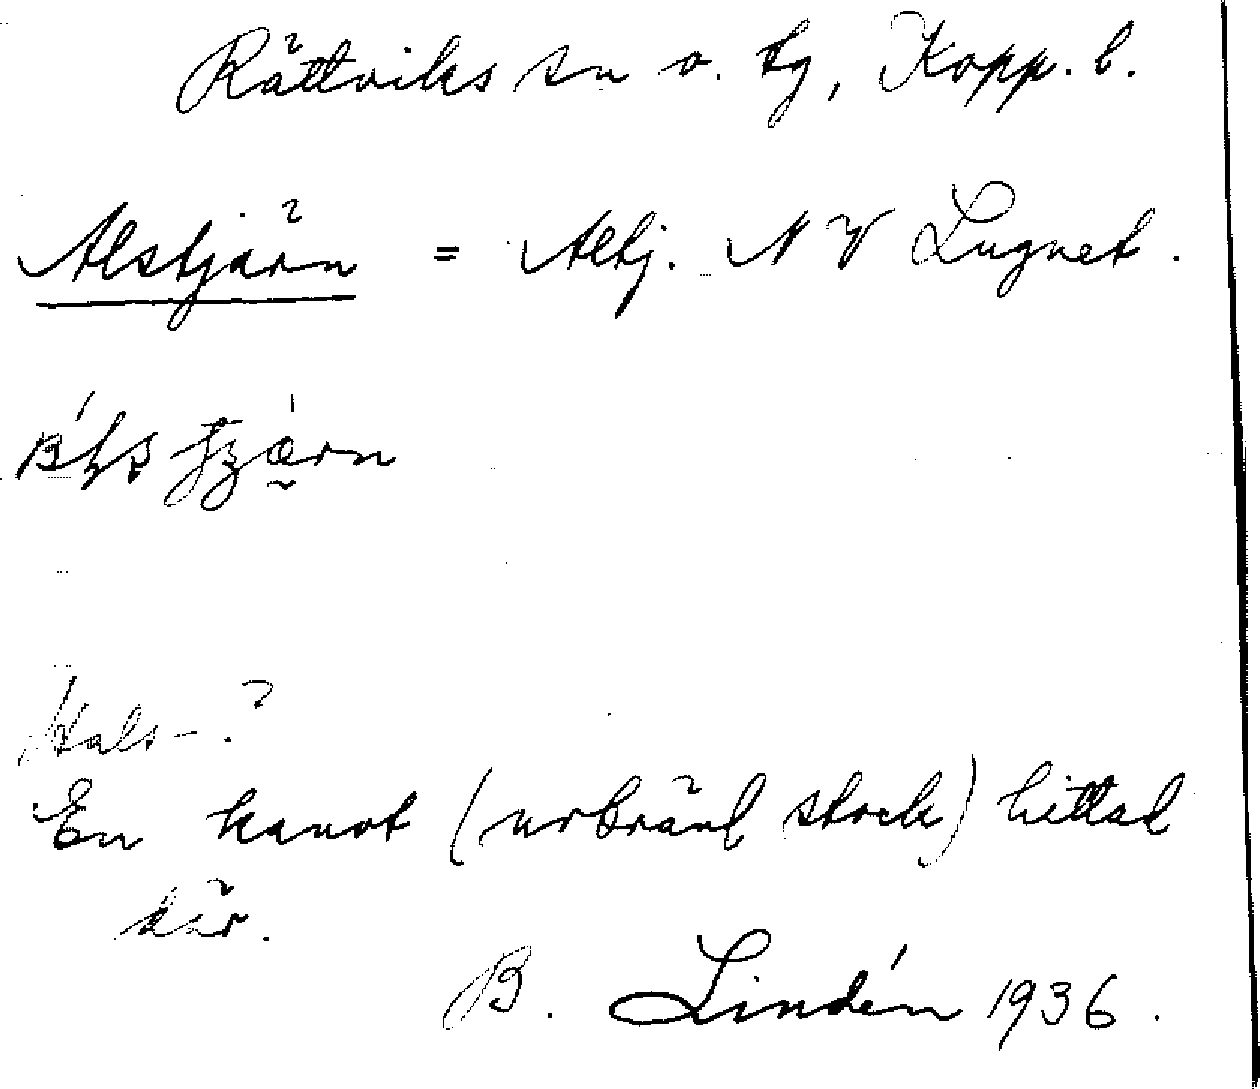 Rättviks sn o. tg, Kopp. l.
Alstjärn = Altj. NV Lugnet.
Hals- ?
En kanot (urbränd stock) hittad
där.
B. Lindén 1936.